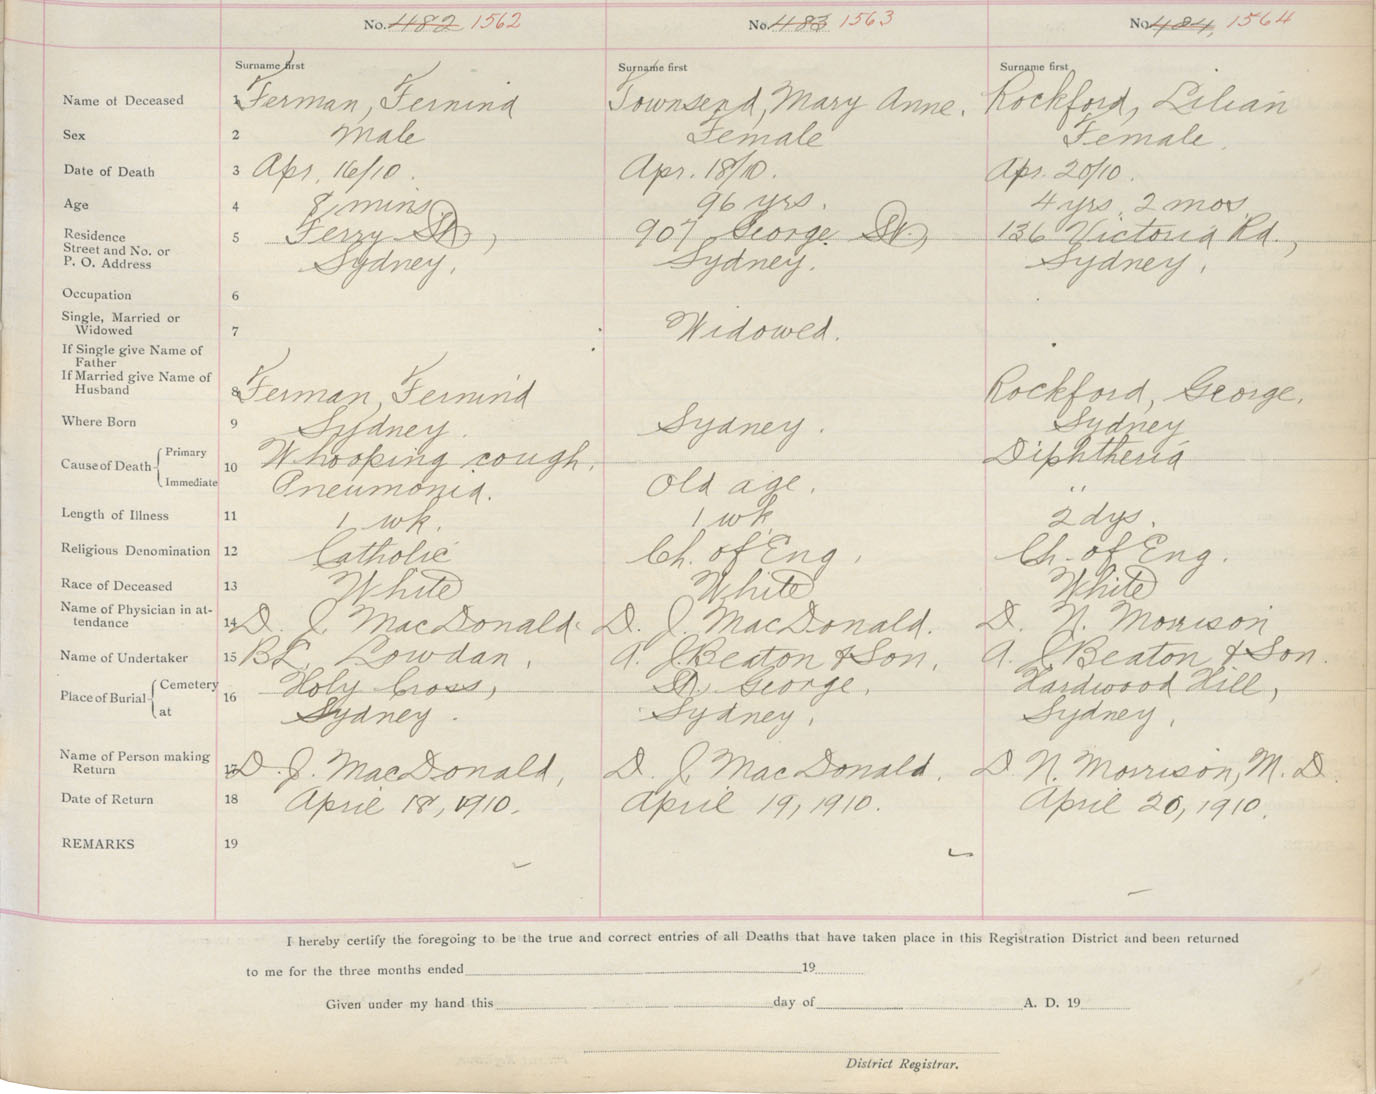 No. 482 1562 No. 483 1563 No. 484, 1564
Surname first Surname first Surname first
Name of Deceased 1 Ferman, Fernind Townsend, Mary Anne. Rockford, Lilian
Sex 2 Male Female Female.
Date of Death 3 Apr. 16/10. Apr. 18/10. Apr. 20/10.
Age 4 8 mins. 96 yrs. 4 yrs 2 mos
Residence
Street and No. or 5 Ferry St, 907 George St, 136 Victoria Rd.,
P. O. Address Sydney. Sydney. Sydney.
Occupation 6
Single, Married or
Widowed 7 Widowed.
If Single give Name of
Father
If Married give Name of
Husband 8 Ferman, Fernind Rockford, George.
Where Born 9 Sydney. Sydney. Sydney
Cause of Death Primary 10 Whooping cough. Diphtheria
Immediate Pneumonia. Old age. "
Length of Illness 11 1 wk. 1 wk 2 dys.
Religious Denomination 12 Catholic Ch. of Eng. Ch. of Eng.
Race of Deceased 13 White White White
Name of Physician in at-
tendance 14 D. J. MacDonald. D. J. MacDonald. D. N. Morrison
Name of Undertaker 15 Lowdan, A. J. Beaton & Son, A. J. Beaton & Son.
Place of Burial Cemetery 16 Holy Cross, St. George, Hardwood Hill,
at Sydney. Sydney, Sydney,
Name of Person making
Return 17 D. J. MacDonald, D. J. MacDonald, D. N. Morrison, M. D.
Date of Return 18 April 18, 1910. April 19, 1910. April 20, 1910.
REMARKS 19
I hereby certify the foregoing to be the true and correct entries of all Deaths that have taken place in this Registration District and been returned
to me for the three months ended 19
Given under my hand this day of A. D. 19
District Registrar.